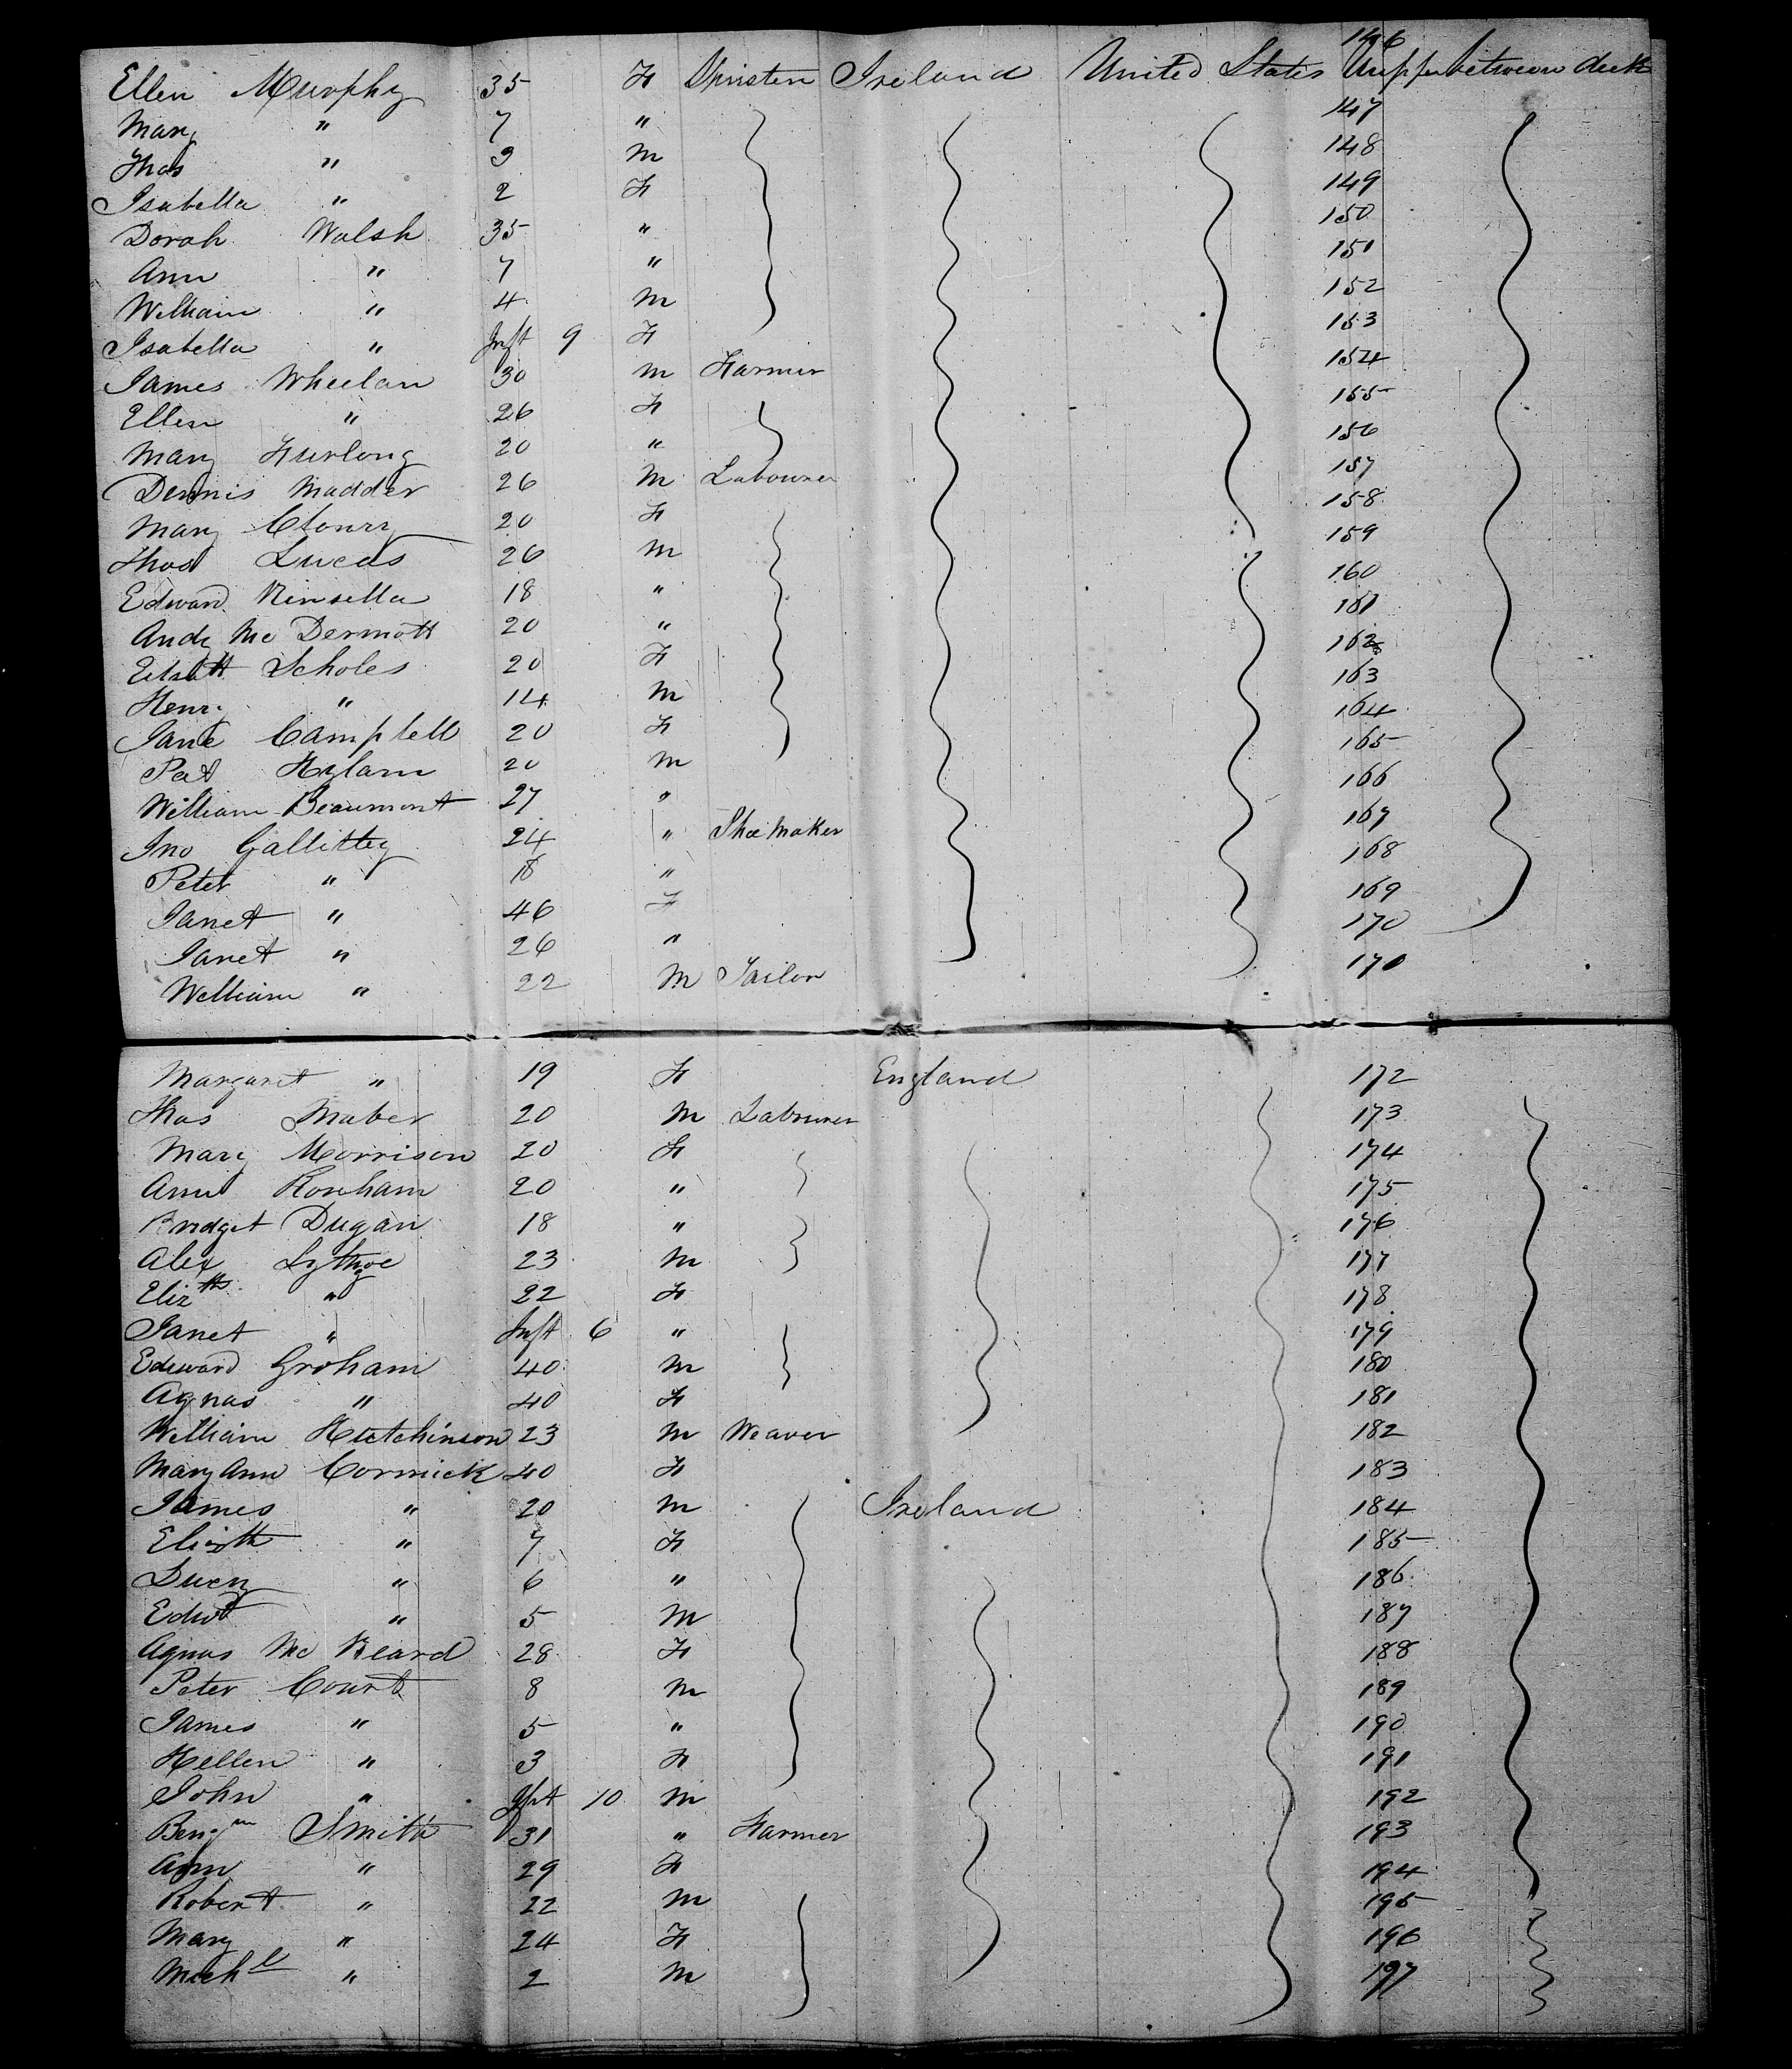 146
Ellen Murphy 35 F Spinster Ireland United States Upper between deck
Mary " 7 " 147
Thos " 9 M 148
Isabella " 2 F 149
Dorah Walsh 35 " 150
Ann " 7 " 151
William " 4 M 152
Isabella " Inft 9 F 153
James Wheelan 30 M Farmer 154
Ellen " 26 F 155
Mary Furlong 20 " 156
Dennis Madder 26 M Labourer 157
Mary 20 F 158
Thos Lucas 26 M 159
Edward Kinsella 18 " 160
Andy Mc Dermott 20 " 161
Scholes 20 F 162
Henry " 14 M 163
Jane Campbell 20 F 164
Pat Hylam 20 M 165
William Beaumont 27 " 166
Jno 24 " Shoe Maker 167
Peter " " 168
Janet " 46 F 169
Janet " 26 " 170
William " 22 M Tailor 170
Margaret " 19 F England 172
Thos Maber 20 M Labourer 173
Mary Morrison 20 F 174
Ann 20 " 175
Bridget Dugan 18 " 176
Alex Lythgoe 23 M 177
Elizth " 22 F 178
Janet " Inft 6 " 179
Edward Graham 40 M 180
Agnas " 40 F 181
William Hutchinson 23 M Weaver 182
Mary Ann Cormick 40 F 183
James " 20 M Ireland 184
Elizth " 7 F 185
Lucy " 6 " 186
Edwd " 5 M 187
Agnas Mc Beard 28 F 188
Peter Court 8 M 189
James " 5 " 190
Hellen " 3 F 191
John " Inft 10 M 192
Benjmn Smith 31 " Farmer 193
Ann " 29 F 194
Robert " 22 M 195
Mary " 24 F 196
Michl " 2 M 197